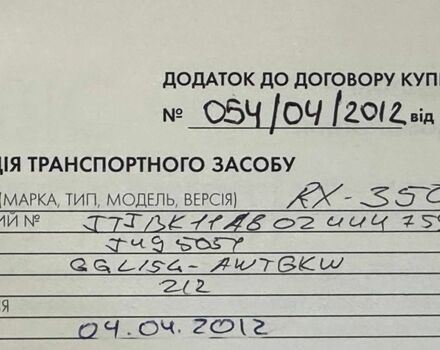 ДОДАТОК ДО ДОГОВОРУ КУП
№ 054/04/2012 від
ЦІЯ ТРАНСПОРТНОГО ЗАСОБУ
(МАРКА, ТИП, МОДЕЛЬ, ВЕРСІЯ) RX-350
ИЙ № JTJBK11A80244475
J495051
GGL15L-AWTGKW
212
ІЯ
04.04.2012